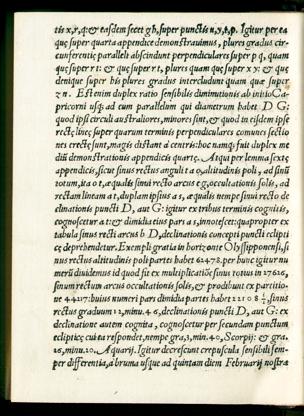 tis x,r,q: & easdem secet g h, super punctis u,y,t,p. Igitur per ea
quę super quarta appendice demonstrauimus, plures gradus cir-
cunferentię paralleli abscindunt perpendiculares super p q, quam
quę super r t: & quę super r t, plures quam quę super x y: & quę
denique super his plures gradus intercludunt quam quæ super
z n. Est enim duplex ratio sensibilis diminutionis ab initio Ca-
pricorni usq; ad eum parallelum qui diametrum habet D G:
quod ipsi circuli australiores, minores sint, & quod in eisdem ipse
rectę lineę super quarum terminis perpendiculares comunes sectio
nes erectę sunt, magis distant à centris: hoc namq; fuit duplex me
diũ demonstrationis appendicis quartę. Atqui per lemma sextę
appendicis, sicut sinus rectus anguli t a o, altitudinis poli, ad sinũ
totum, ita o t, æqualis sinui recto arcus e g, occultationis solis, ad
rectam lineam a t, duplam ipsius a s, æqualis nempe sinui recto de
clinationis puncti D, aut G: igitur ex tribus terminis cognitis,
cognoscetur a t: & dimidia eius pars a s, innotescet: quapropter ex
tabula sinus recti arcus b D, declinationis concepti puncti eclipti
cę deprehendetur. Exempli gratia in horizonte Olysipponensi, si
nus rectus altitudinis poli partes habet 62478. per hunc igitur nu
merũ diuidemus id quod fit ex multiplicatiõe sinus totus in 27626,
sinum rectum arcus occultationis solis, & prodibunt ex partitio-
ne 44217: huius numeri pars dimidia partes habet 22108 ½, sinus
rectus graduum 12, minu. 46, declinationis puncti D, aut G: ex
declinatione autem cognita, cognoscetur per secundam punctum
eclipticę cui ea respondet, nempe gra, 3, min. 40, Scorpij: & gra.
26, minu. 20. Aquarij. Igitur decrescunt crepuscula sensibili sem-
per differentia, à bruma usque ad quintam diem Februarij nostra